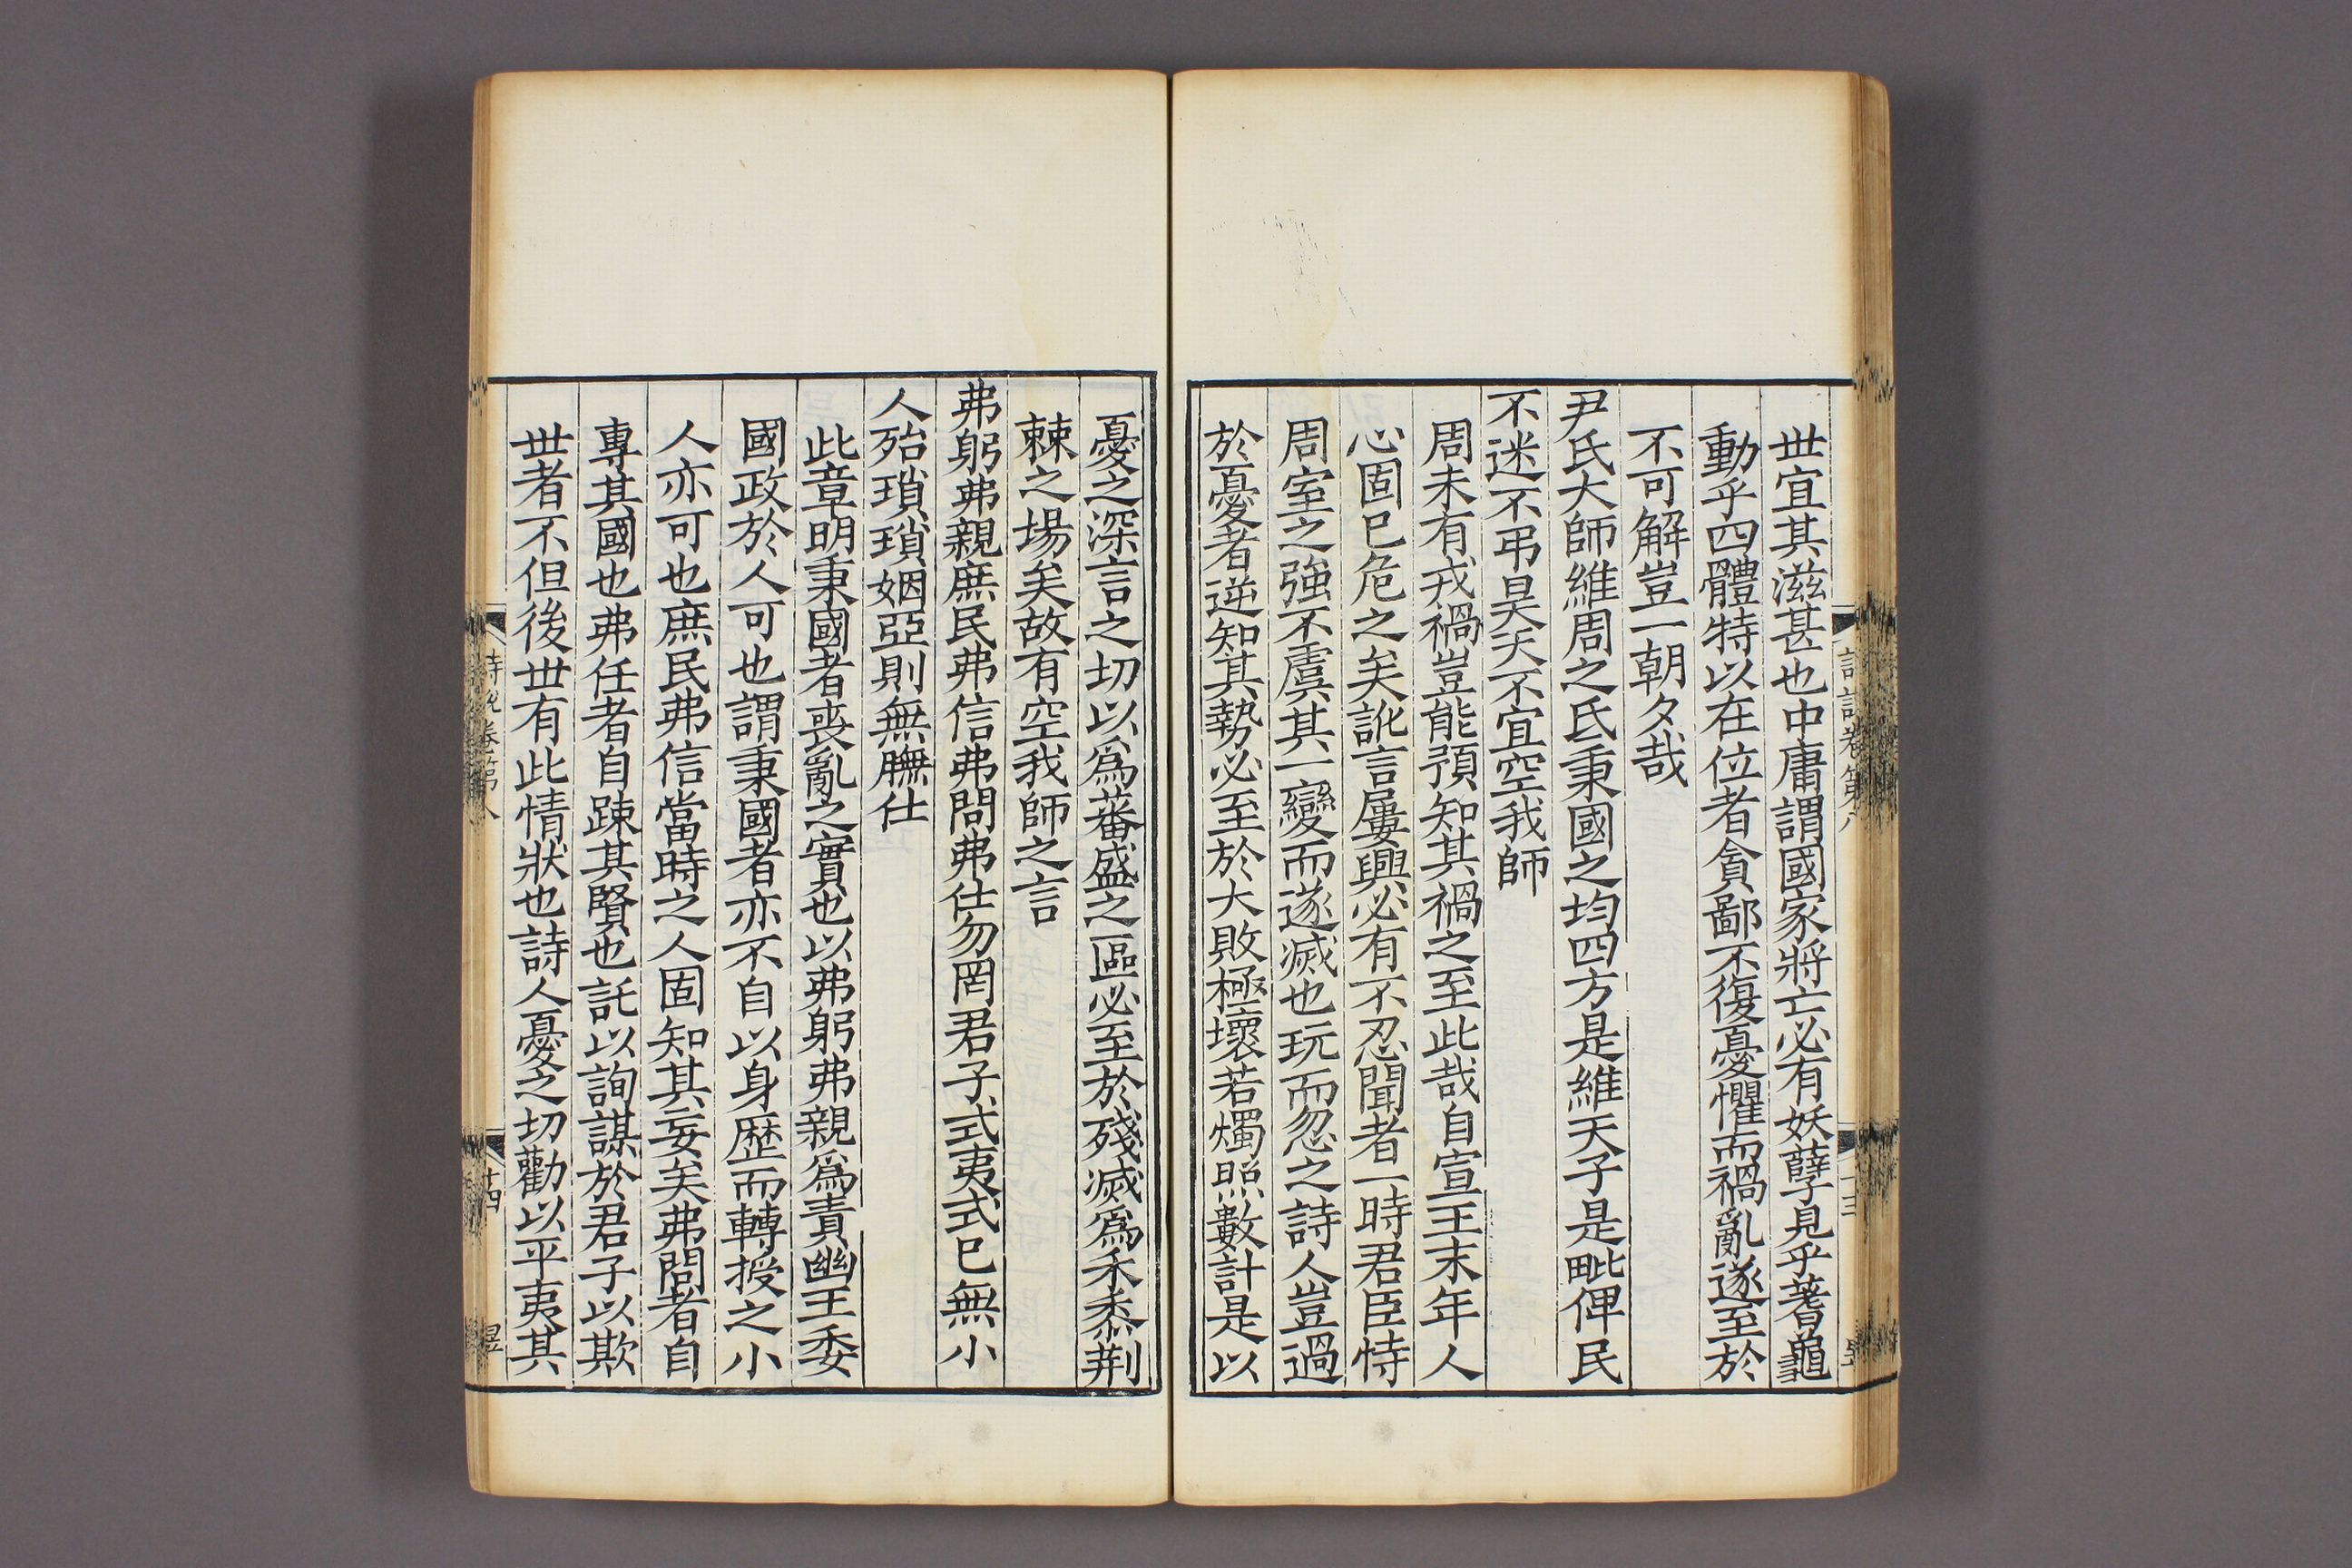 世宜其滋甚也中庸謂國家將亡必有妖孽見乎蓍龜
動乎四體特以在位者貪鄙不復憂懼而禍亂遂至於
不可解豈一朝夕哉
尹氏大師維周之氐秉國之均四方是維天子是毗俾民
不迷不弔昊天不宜空我師
周未有戎禍豈能預知其禍之至此哉自宣王末年人
心固已危之矣訛言屢興必有不忍聞者一時君臣恃
周室之強不虞其一變而遂滅也玩而忽之詩人豈過
於憂者逆知其勢必至於大敗極壞若燭照數計是以
憂之深言之切以為蕃盛之區必至於殘滅為禾黍荆
棘之場矣故有空我師之言
弗躬弗親庶民弗信弗問弗仕勿罔君子式夷式已無小
人殆瑣瑣姻亞則無膴仕
此章明秉國者喪亂之實也以弗躬弗親為責幽王委
國政於人可也謂秉國者亦不自以身歷而轉授之小
人亦可也庶民弗信當時之人固知其妄矣弗問者自
專其國也弗任者自踈其賢也託以詢謀於君子以欺
世者不但後世有此情狀也詩人憂之切勸以平夷其
詩說卷第八
十四